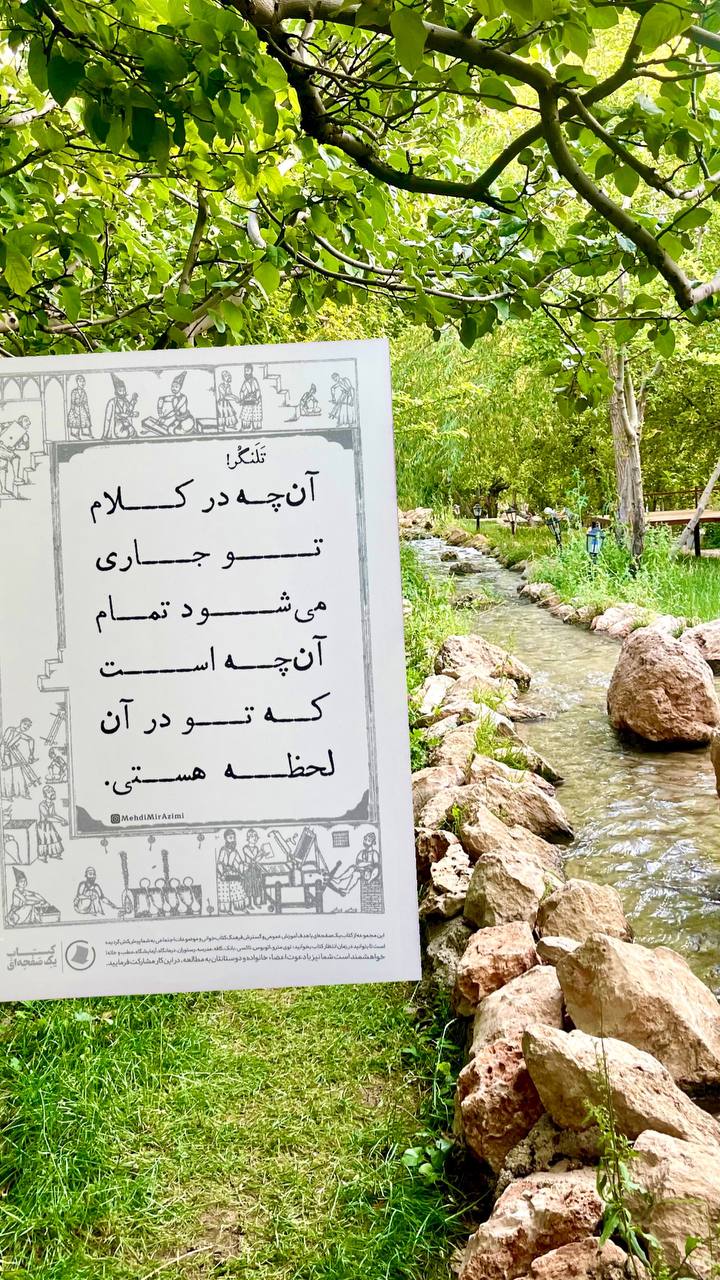 تَلَنگُر!
آن‌چه در کلام
تو جاری
می‌شود تمام
آن‌چه است
که تو در آن
لحظه هستی.
MehdiMirAzimi
این مجموعه از کتاب یک‌صفحه‌ای با هدف آموزش عمومی و گسترش فرهنگ کتاب‌خوانی و موضوعات اجتماعی به شما پیش‌کش گردیده
است تا بتوانید در زمان انتظار کتاب بخوانید: توی مترو، اتوبوس، تاکسی، بانک، کافه، مدرسه، رستوران، درمانگاه، آزمایشگاه، مطب و خانه!
خواهشمند است شما نیز با دعوت اعضاء خانواده و دوستانتان به مطالعه، در این کار مشارکت فرمایید.
کتاب
یک‌صفحه‌ای